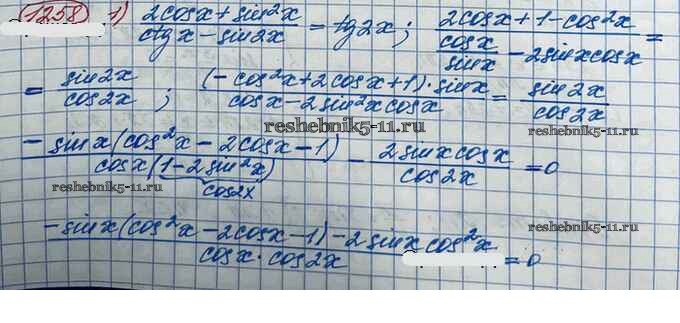 1258 1) (2cosx + sin²x)/(ctgx − sin2x) = tg2x; (2cosx + 1 − cos²x)/(cosx/sinx − 2sinxcosx) =
= sin2x/cos2x; ((−cos²x + 2cosx + 1)·sinx)/(cosx − 2sin²xcosx) = sin2x/cos2x
reshebnik5-11.ru
(−sinx(cos²x − 2cosx − 1))/(cosx(1 − 2sin²x)) − (2sinxcosx)/(cos2x) = 0
reshebnik5-11.ru reshebnik5-11.ru
cos2x
reshebnik5-11.ru
(−sinx(cos²x − 2cosx − 1) − 2sinxcos²x)/(cosx·cos2x) = 0